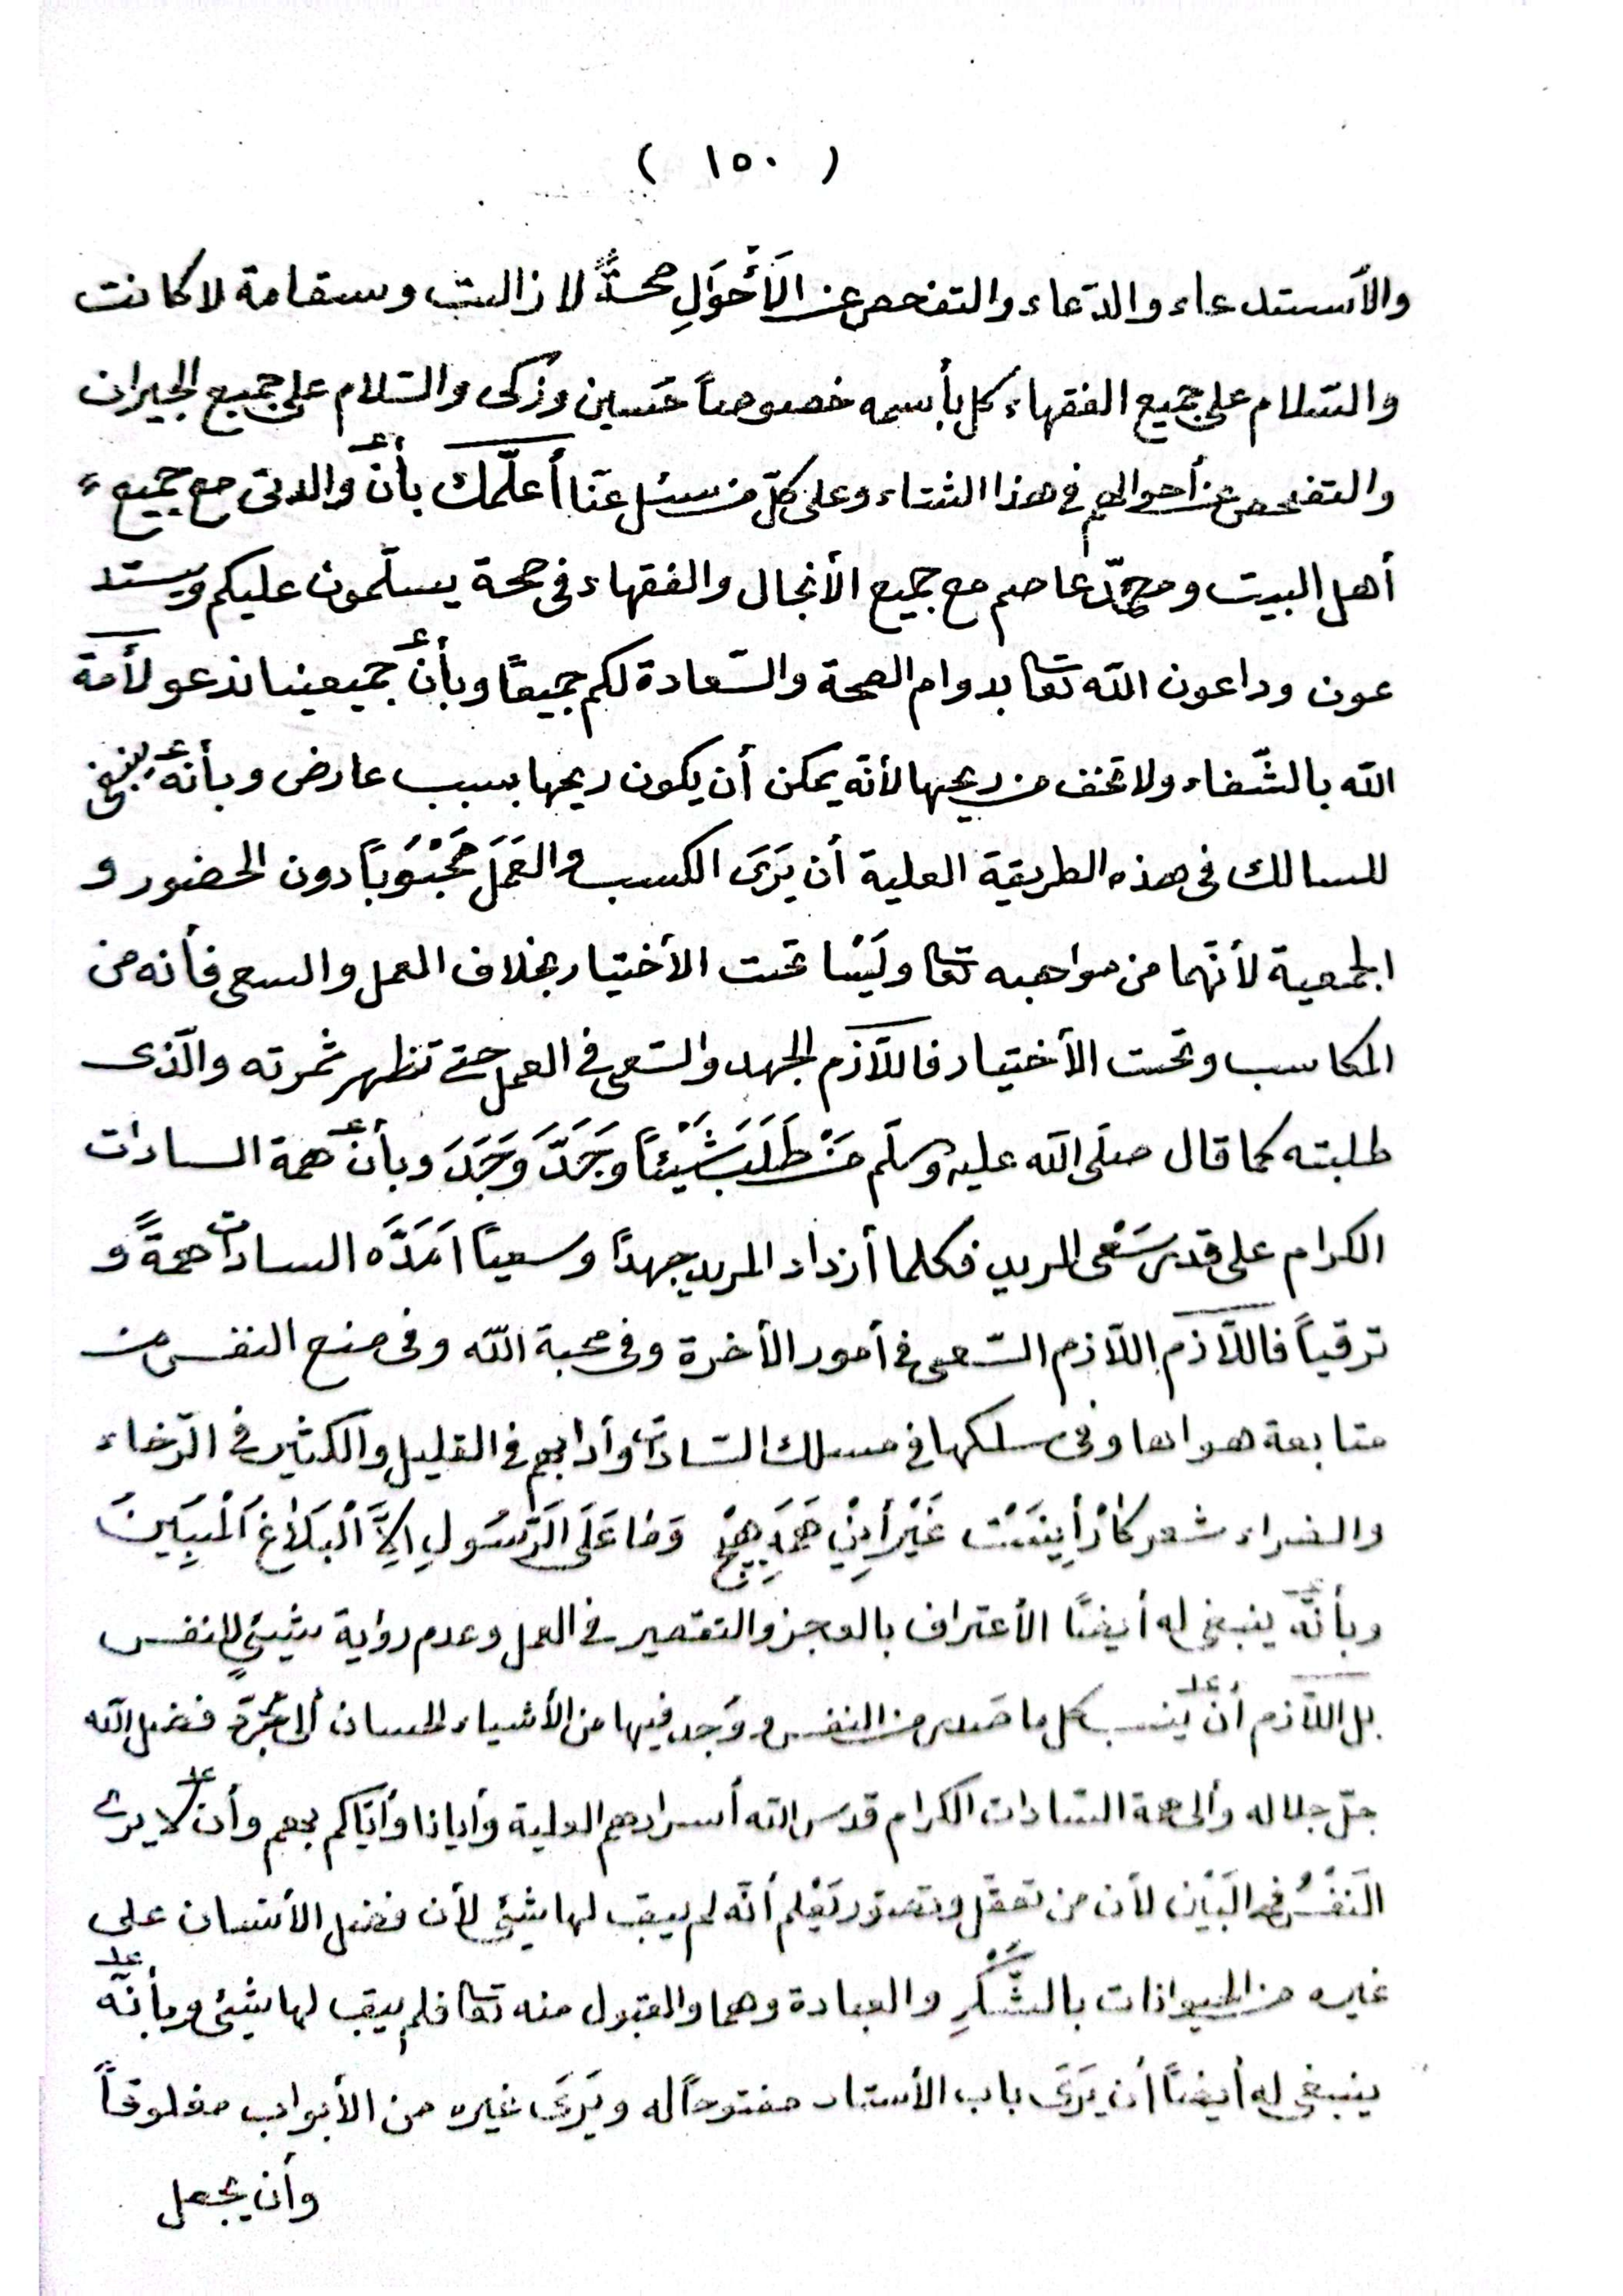 ( ١٥٠ )
والأستدعاء والدّعاء والتفحص عن الَأَحْوَالِ صحةً لا زالت وسقامة لا كانت
والسّلام على جميع الفقهاء كل بأسمه خصوصاً حَسين وزكى والسّلام على جميع الجيران
والتفحص عن أحوالهم فى هذا الشتاء وعلى كلّ من سئل عنّا أعلّمك بأنّ والدتى مع جميع
أهل البيت ومحمّد عاصم مع جميع الأنجال والفقهاء فى صحة يسلّمون عليكم ويستد
عون وداعون اللّه تعا بدوام الصحة والسّعادة لكم جميعًا وبأنّ جميعينا ندعو لأمة
اللّه بالشّفاء ولا تخف من ريحها لأنّه يمكن أن يكون ريحها بسبب عارض وبأنّه ينبغى
للسالك فى هذه الطريقة العلية أن يَرَىَ الكسب والعَمَلَ مَحْبُوبَاً دون الحضور و
الجمعية لأنّهما من مواهبه تعا ولَيْسَا تحت الأختيار بخلاف العمل والسعى فأنه من
المكاسب وتحت الأختيار فاللّازم الجهد والسّعى فى العمل حتى تظهر ثمرته والّذى
طلبته كما قال صلّى اللّه عليه وسلّم مَنْ طَلَبَ شَيْئاً وَجَدَّ وَجَدَ وبأنّ همة السادات
الكرام على قدر سَعْى المريد فكلما أزداد المريد جهدًا وسعياً اَمَدَّه السادات همةً و
ترقياً فاللّازم اللّازم السّعى فى أمور الأخرة وفى محبة اللّه وفى منع النفس من
متابعة هواها وفى سلكها فى مسلك السّادات وأدابهم فى القليل والكثير فى الرّخاء
والضراء شعر كَارْ أَينَسْت غَيْرِ أَينْ هَمَه هِيچْ وَمَا عَلَى الَرَّسُولِ اِلاَّ اَلْبَلاغَ اَلْمُبِينَ
وبأنّه ينبغى له أيضًا الأعتراف بالعجز والتقصير فى العمل وعدم رؤية شيئىٍ للنفس
بل اللّازم أن يَنسب كل ما صَدر من النفس ووَجد فيها من الأشياء الحسان ألى مُجَرَّد فضل اللّه
جلّ جلاله وألى همة السّادات الكرام قدس اللّه أسرارهم العلية وأيانا وأيّاكم بهم وأن لا يرى
الَنَفْسُ فى البَيْن لأن من تعقّل وتصوّر يَعْلم أنّه لم يبقِ لها شيئى لأن فضل الأنسان على
غيره من الحيوانات بالشُّكْرِ والعبادة وهما والقبول منه تعا فلم يبقِ لها شيئى وبأنّه
ينبغى له أيضًا أن يَرَىَ باب الأستاد مفتوحاً له ويَرَىَ غيره من الأبواب مغلوقاً
وأن يجعل